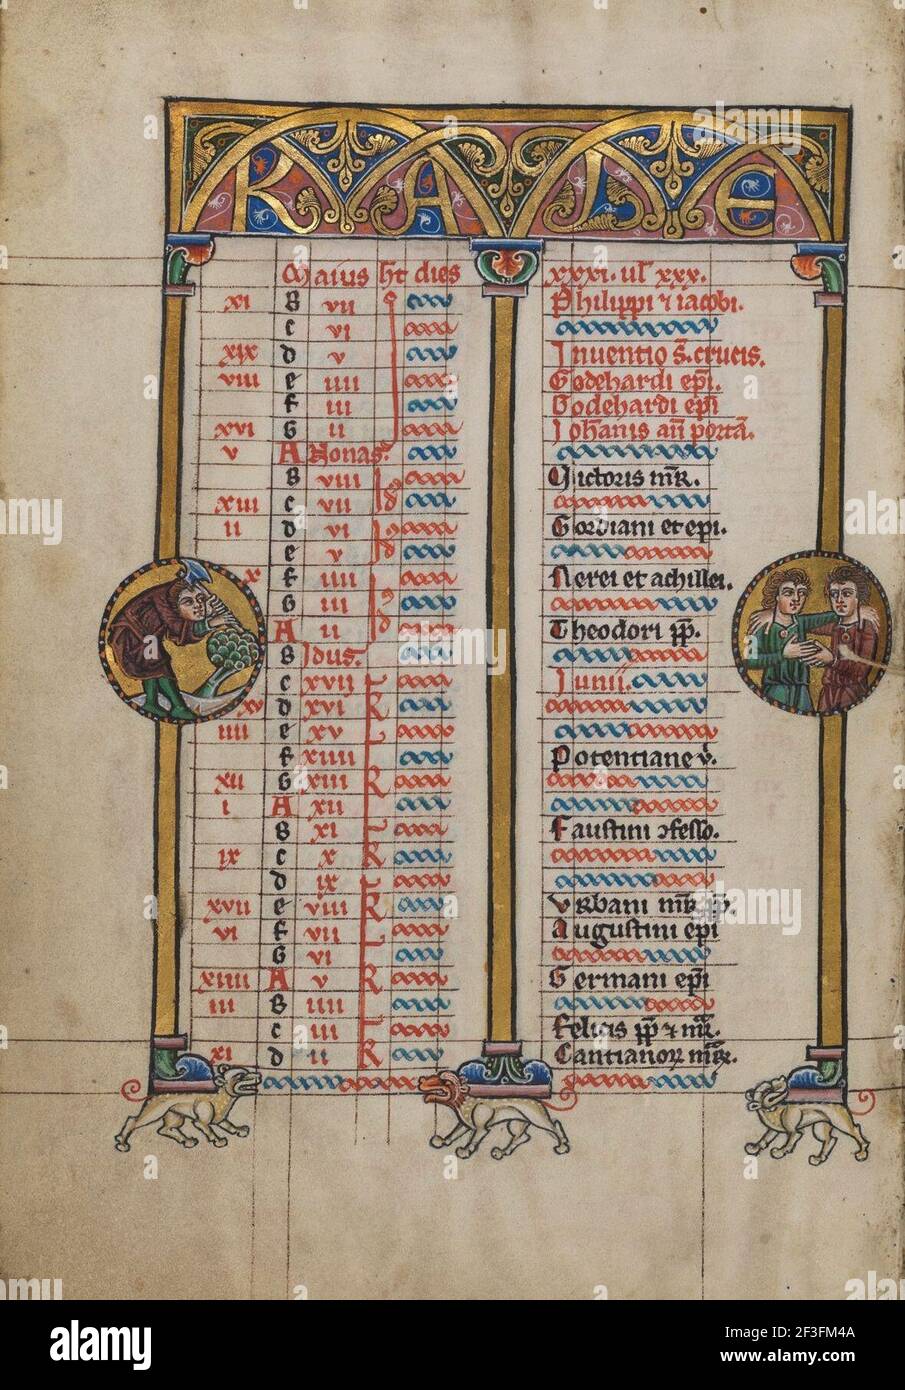 KALE
Maius ht dies xxxi. ul xxx.
xi B vii Philippi ⁊ iacobi.
c vi
xix d v Inuentio s̄. crucis.
viii e iiii Godehardi ep̄i.
f iii Godehardi ep̄i
xvi G ii Ioh̄anis an̄ portā.
v A Nonas.
B viii Victoris m̄R.
xiii c vii
ii d vi Gordiani et epi.
e v
x f iiii Nerei et achillei.
G iii
A ii Theodori p̄p̄.
B Idus.
c xvii Iunii.
xv d xvi
iiii e xv
f xiiii Potentiane v̄.
xii G xiii
i A xii
B xi Faustini ↄfesso.
ix c x
d ix
xvii e viii Urbani m̄R p̄p̄.
vi f vii Augustini ep̄i
G vi
xiiii A v Germani ep̄i
iii B iiii
c iii Felicis p̄p̄ ⁊ m̄R.
xi d ii Cantianoꝝ m̄R.
alamy
Image ID: 2F3FM4A
www.alamy.com